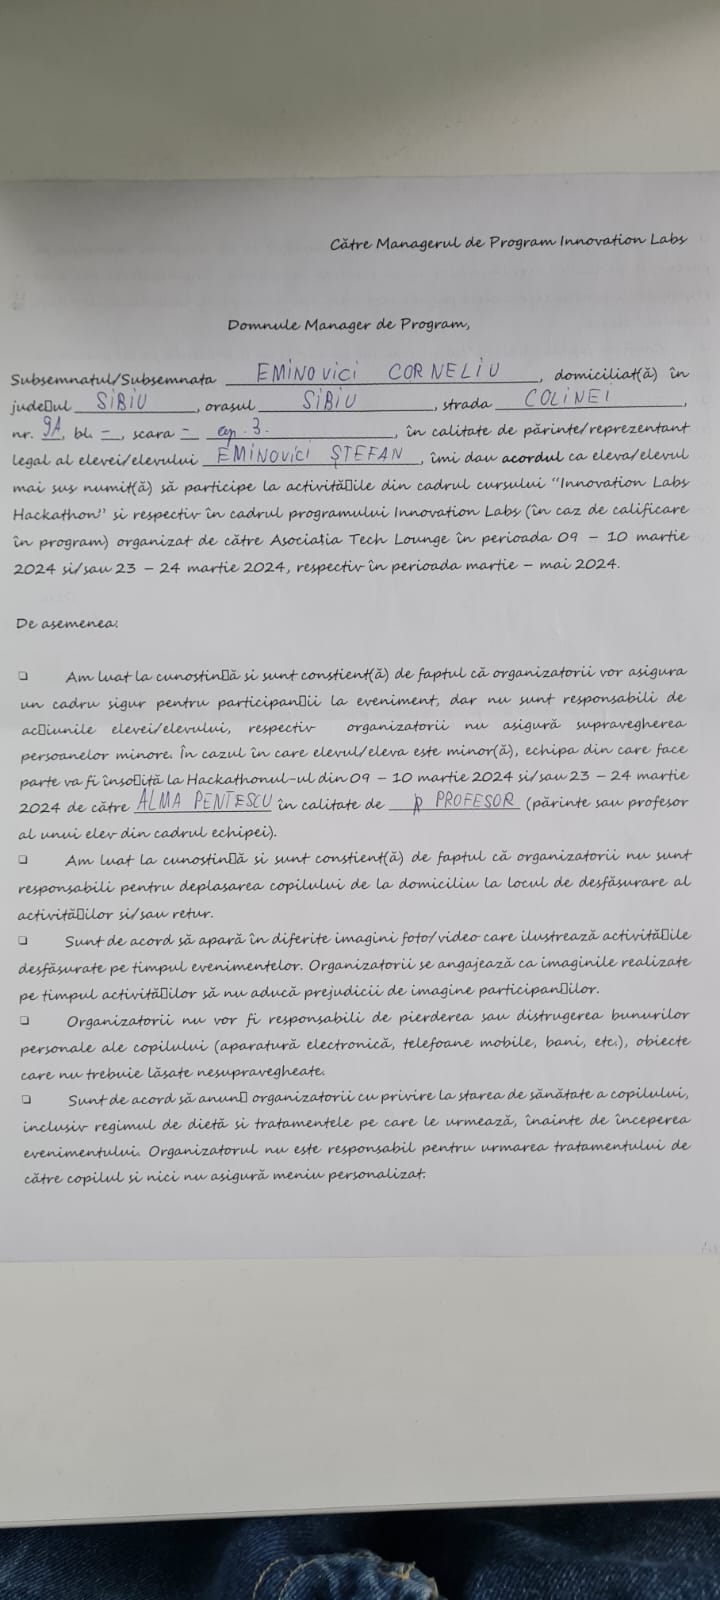 Către Managerul de Program Innovation Labs
Domnule Manager de Program,
Subsemnatul/Subsemnata EMINOVICI CORNELIU, domiciliat(ă) în
jude▯ul SIBIU, orasul SIBIU, strada COLINEI,
nr. 9A, bl. –, scara – ap. 3., în calitate de părinte/reprezentant
legal al elevei/elevului EMINOVICI ȘTEFAN, îmi dau acordul ca eleva/elevul
mai sus numit(ă) să participe la activită▯ile din cadrul cursului “Innovation Labs
Hackathon” si respectiv în cadrul programului Innovation Labs (în caz de calificare
în program) organizat de către Asociatia Tech Lounge în perioada 09 – 10 martie
2024 si/sau 23 – 24 martie 2024, respectiv în perioada martie – mai 2024.
De asemenea:
▯ Am luat la cunostin▯ă si sunt constient(ă) de faptul că organizatorii vor asigura
un cadru sigur pentru participan▯ii la eveniment, dar nu sunt responsabili de
ac▯iunile elevei/elevului, respectiv organizatorii nu asigură supravegherea
persoanelor minore. În cazul în care elevul/eleva este minor(ă), echipa din care face
parte va fi înso▯ită la Hackathonul-ul din 09 – 10 martie 2024 si/sau 23 – 24 martie
2024 de către ALMA PENTESCU în calitate de PROFESOR (părinte sau profesor
al unui elev din cadrul echipei).
▯ Am luat la cunostin▯ă si sunt constient(ă) de faptul că organizatorii nu sunt
responsabili pentru deplasarea copilului de la domiciliu la locul de desfăsurare al
activită▯ilor si/sau retur.
▯ Sunt de acord să apară în diferite imagini foto/video care ilustrează activită▯ile
desfăsurate pe timpul evenimentelor. Organizatorii se angajează ca imaginile realizate
pe timpul activită▯ilor să nu aducă prejudicii de imagine participan▯ilor.
▯ Organizatorii nu vor fi responsabili de pierderea sau distrugerea bunurilor
personale ale copilului (aparatură electronică, telefoane mobile, bani, etc.), obiecte
care nu trebuie lăsate nesupravegheate.
▯ Sunt de acord să anun▯ organizatorii cu privire la starea de sănătate a copilului,
inclusiv regimul de dietă si tratamentele pe care le urmează, înainte de începerea
evenimentului. Organizatorul nu este responsabil pentru urmarea tratamentului de
către copilul si nici nu asigură meniu personalizat.